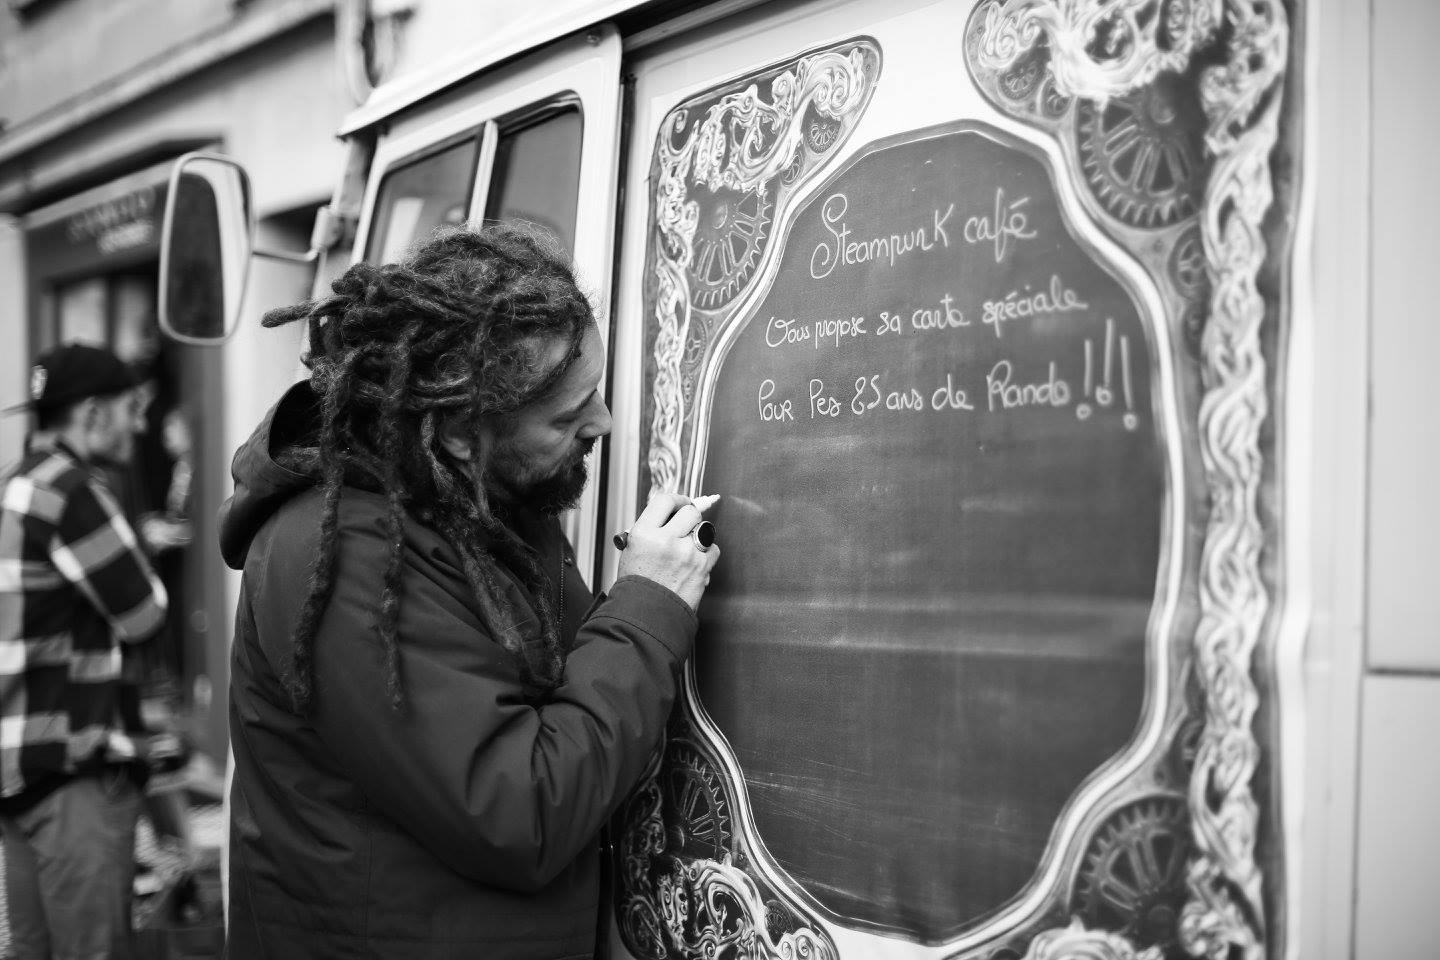 Steampunk café
Vous propose sa carte spéciale
Pour les 85 ans de Rando !!!